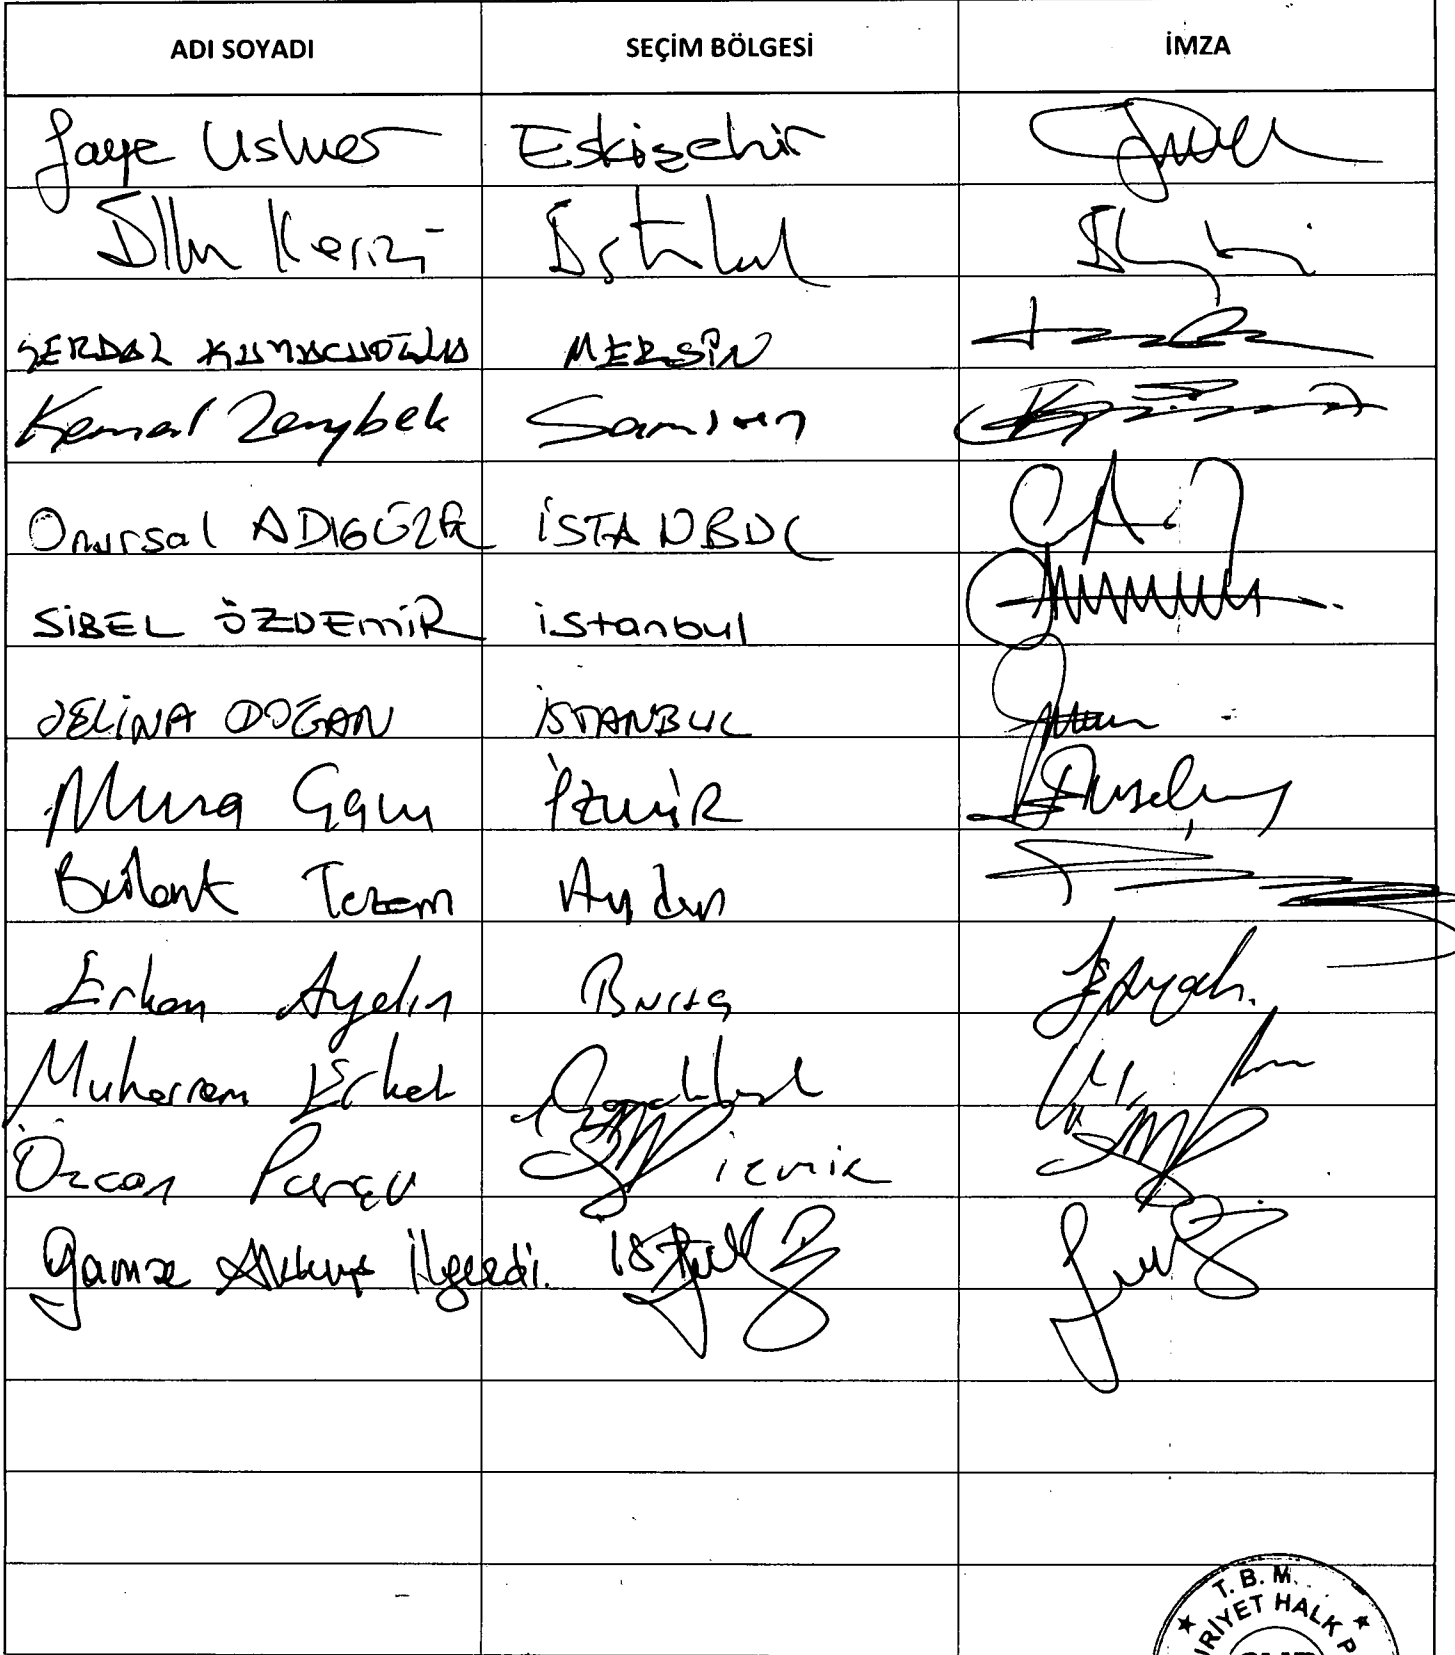 ADI SOYADI SEÇİM BÖLGESİ İMZA
Gaye Usluer Eskişehir
İlhan Kesici İstanbul
SERDAL KUYUCUOĞLU MERSİN
Kemal Zeybek Samsun
Onursal ADIGÜZEL İSTANBUL
SİBEL ÖZDEMİR istanbul
SELİNA DOĞAN İSTANBUL
Musa Çam İzmiR
Bülent Tezcan Aydın
Erkan Aydın Bursa
Muharrem Erkek Çanakkale
Özcan Purçu izmir
Gamze Akkuş İlgezdi. ist
T. B. M.
RİYET HALK P